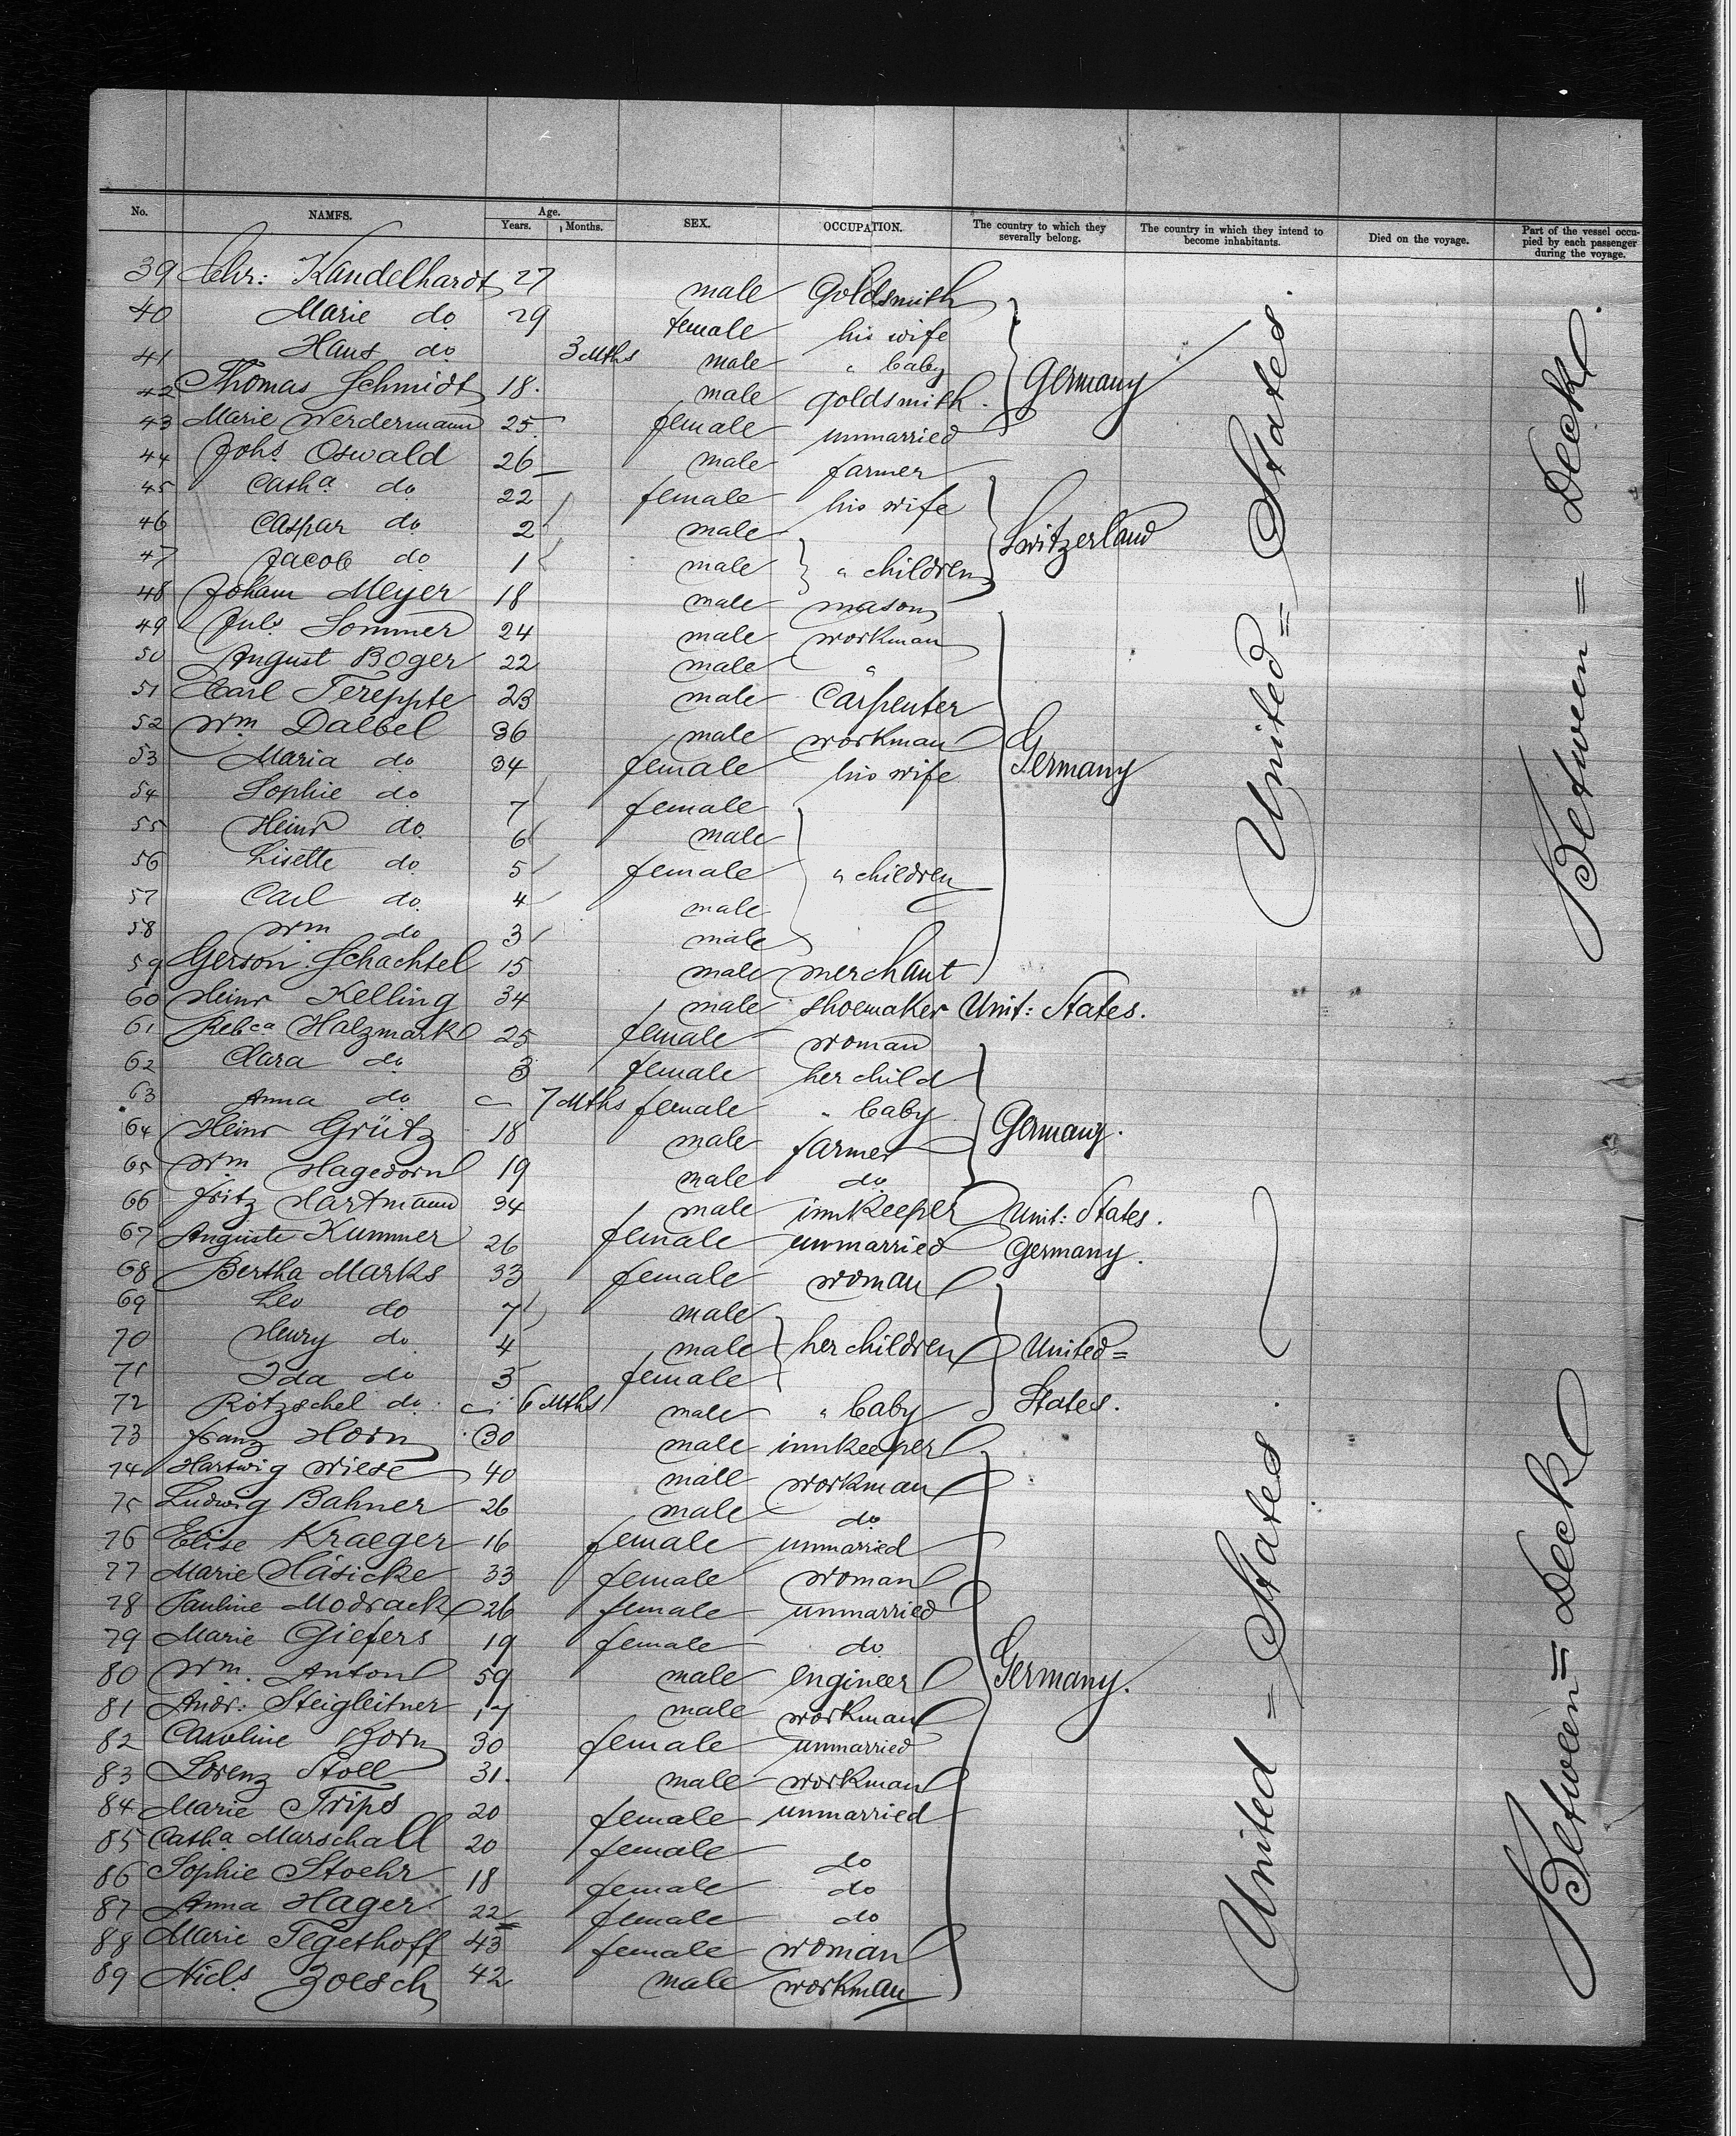 No. NAMES. Age. Years. Months. SEX. OCCUPATION. The country to which they severally belong. The country in which they intend to become inhabitants. Died on the voyage. Part of the vessel occupied by each passenger during the voyage.
39 Chr: Kandelhardt 27 male Goldsmith
40 Marie do 29 female his wife
41 Hans do 3 Mths male " baby
42 Thomas Schmidt 18. male goldsmith. Germany
43 Marie Werdermann 25 female unmarried
44 Johs. Oswald 26 male farmer
45 Catha. do 22 female his wife
46 Caspar do 2 male Switzerland
47 Jacob do 1 male " children
48 Johann Meyer 18 male mason
49 Juls. Sommer 24 male workman
50 August Boger 22 male "
51 Carl Tereppte 23 male Carpenter
52 Wm. Dalbel 36 male workman
53 Maria do 34 female his wife Germany
54 Sophie do 7 female
55 Heinr do 6 male
56 Lisette do 5 female " children
57 Carl do 4 male
58 Wm do 3 male
59 Gerson Schachtel 15 male merchant
60 Heinr Kelling 34 male shoemaker Unit: States.
61 Rebca Holzmark 25 female woman
62 Clara do 3 female her child
63 Anna do 7 Mths female " baby Germany.
64 Heinr Grütz 18 male farmer
65 Wm. Hagedorn 19 male do
66 Fritz Hartmann 34 male innkeeper Unit: States.
67 Auguste Kummer 26 female unmarried Germany.
68 Bertha Marks 33 female woman
69 Leo do 7 male
70 Henry do 4 male her children United=
71 Ida do 3 female
72 Rötzschel do. 6 Mths male " baby States.
73 Franz Horn 30 male innkeeper
74 Hartwig Wiese 40 male workman
75 Ludwig Bahner 26 male do
76 Elise Kraeger 16 female unmarried
77 Marie Häsicke 33 female woman
78 Pauline Modrack 26 female unmarried
79 Marie Giefers 19 female do
80 Wm. Anton 59 male engineer Germany.
81 Andr: Steigleitner 17 male workman
82 Caroline Born 30 female unmarried
83 Lorenz Stoll 31. male workman
84 Marie Trips 20 female unmarried
85 Catha. Marschall 20 female do
86 Sophie Stoehr 18 female do
87 Anna Hager 22 female do
88 Marie Tegethoff 43 female woman
89 Niels. Zoesch 42 male workman
United = States.
United = States.
Between = Deck.
Between = Deck